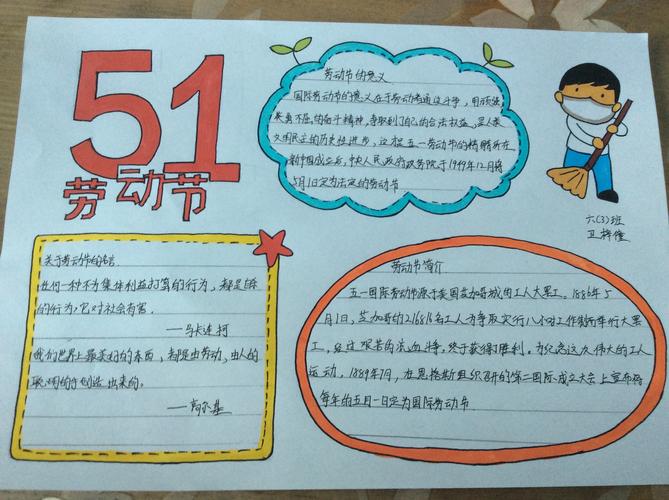 51
劳动节
劳动节的意义
国际劳动节的意义在于劳动者通过斗争,用顽强
英勇不屈的奋斗精神,争取到了自己的合法权益,是人类
文明民主的历史性进步,这才是五一劳动节的精髓所在
新中国成立后,中央人民政府政务院于1949年12月将
5月1日定为法定的劳动节
六(3)班
关于劳动节的名言
任何一种不为集体利益打算的行为,都是自杀
的行为,它对社会有害.
——马卡连柯
我们世界上最美好的东西,都是由劳动,由人的
聪明的手创造出来的。
——高尔基
劳动节简介
五一国际劳动节源于美国芝加哥城的工人大罢工。1886年5
月1日,芝加哥的216816名工人为争取实行八小时工作制而举行大罢
工,经过艰苦的流血斗争,终于获得了胜利。为纪念这次伟大的工人
运动,1889年7月,在恩格斯组织召开的第二国际成立大会上宣布将
每年的五月一日定为国际劳动节